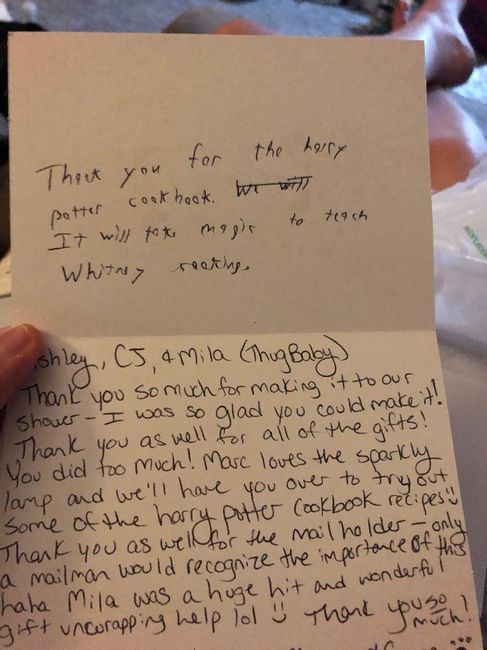 Thank you for the harry
potter cookbook. We will
It will take magic to teach
Whitney cooking.
shley, CJ, & Mila (Thug Baby)
Thank you so much for making it to our
shower - I was so glad you could make it!
Thank you as well for all of the gifts!
You did too much! Marc loves the sparkly
lamp and we'll have you over to try out
some of the harry potter cookbook recipes
Thank you as well for the mail holder - only
a mailman would recognize the importance of this
haha Mila was a huge hit and wonderful
gift unwrapping help lol Thank you so
much!